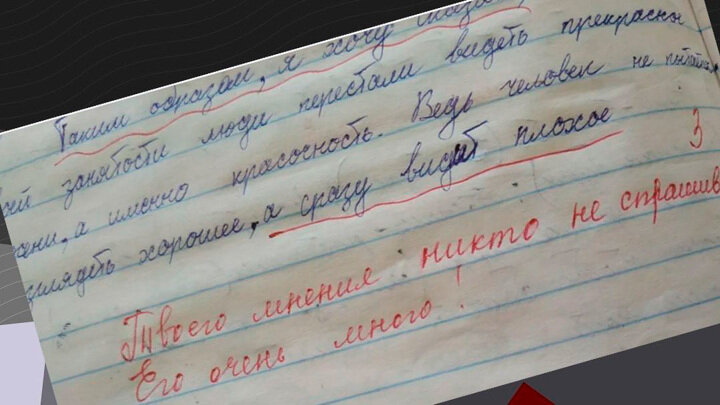 Таким образом, я хочу сказа
занятости люди перестали видеть прекрасны
а именно красочность. Ведь человек не пытает
глядеть хорошее, а сразу видит плохое
3
Твоего мнения никто не спрашив
Его очень много!